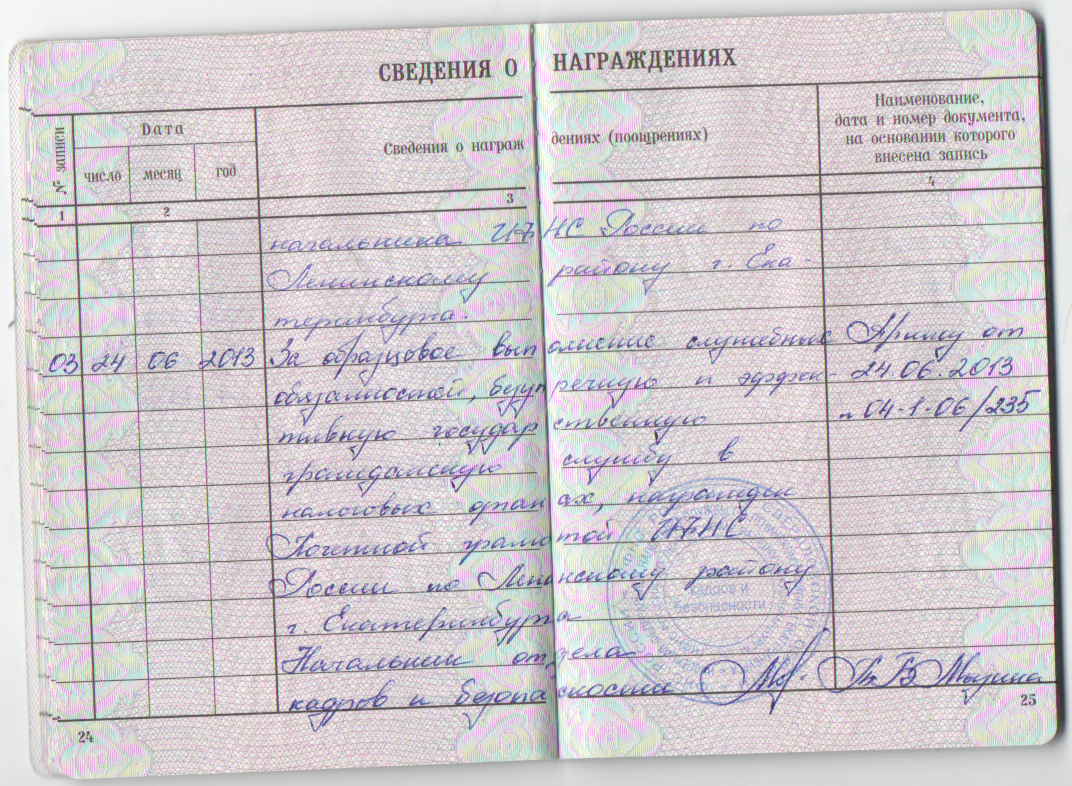 СВЕДЕНИЯ О НАГРАЖДЕНИЯХ
№ записи
Дата
число месяц год
Сведения о награждениях (поощрениях)
Наименование,
дата и номер документа,
на основании которого
внесена запись
1 2 3 4
начальника ИФНС России по
Ленинскому району г. Ека-
теринбурга.
03 24 06 2013 За образцовое выполнение служебных Приказ от
обязанностей, безупречную и эффек- 24.06.2013
тивную государственную № 04-1-06/235
гражданскую службу в
налоговых органах, награжден
Почетной грамотой ИФНС
России по Ленинскому району
г. Екатеринбурга
Начальник отдела
кадров и безопасности
кадров и
безопасности
24
25